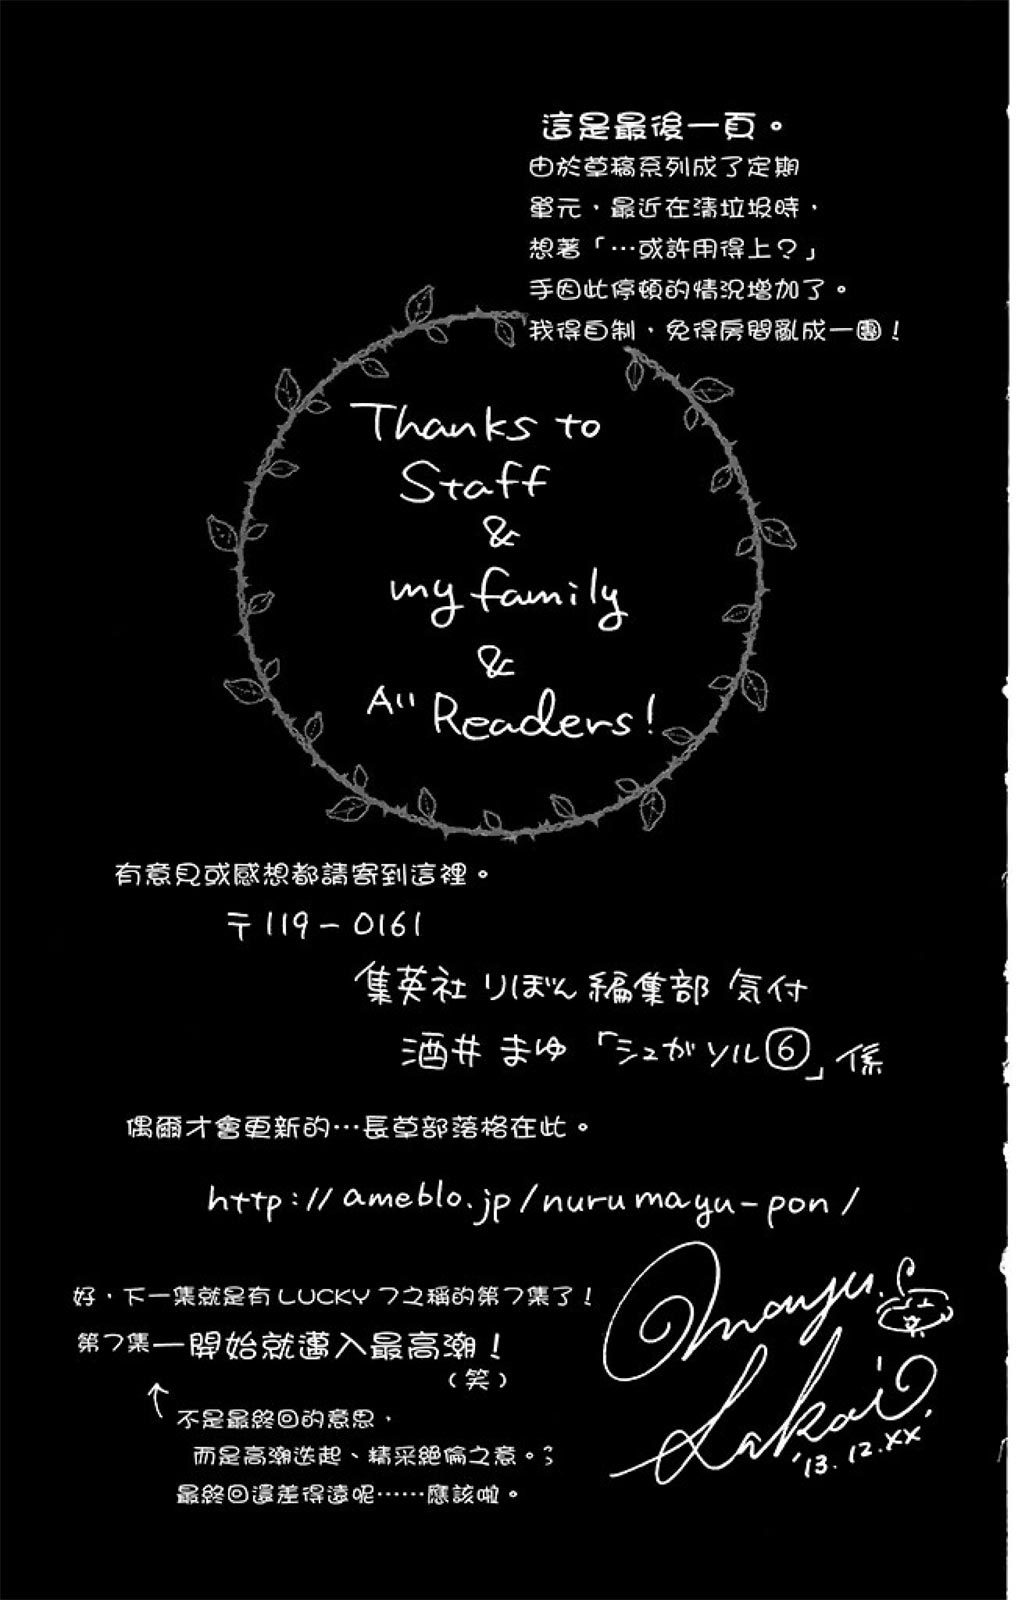 這是最後一頁。
由於草稿系列成了定期
單元，最近在清垃圾時，
想著「…或許用得上？」
手因此停頓的情況增加了。
我得自制，免得房間亂成一團！
Thanks to
Staff
&
my family
&
All Readers!
有意見或感想都請寄到這裡。
〒119-0161
集英社 りぼん編集部 気付
酒井 まゆ 「シュガソル⑥」係
偶爾才會更新的…長草部落格在此。
http://ameblo.jp/nurumayu-pon/
好，下一集就是有LUCKY 7之稱的第7集了！
第7集一開始就邁入最高潮！
（笑）
不是最終回的意思，
而是高潮迭起、精采絕倫之意。
最終回還差得遠呢……應該啦。
Mayu.
Sakai.
'13.12.XX